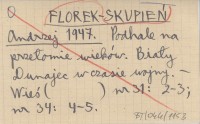 FLOREK-SKUPIEŃ
Andrzej 1947. Podhale na
przełomie wieków. Biały
Dunajec w czasie wojny. -
Wieś ( ) nr 31: 2-3;
nr 34: 4-5.